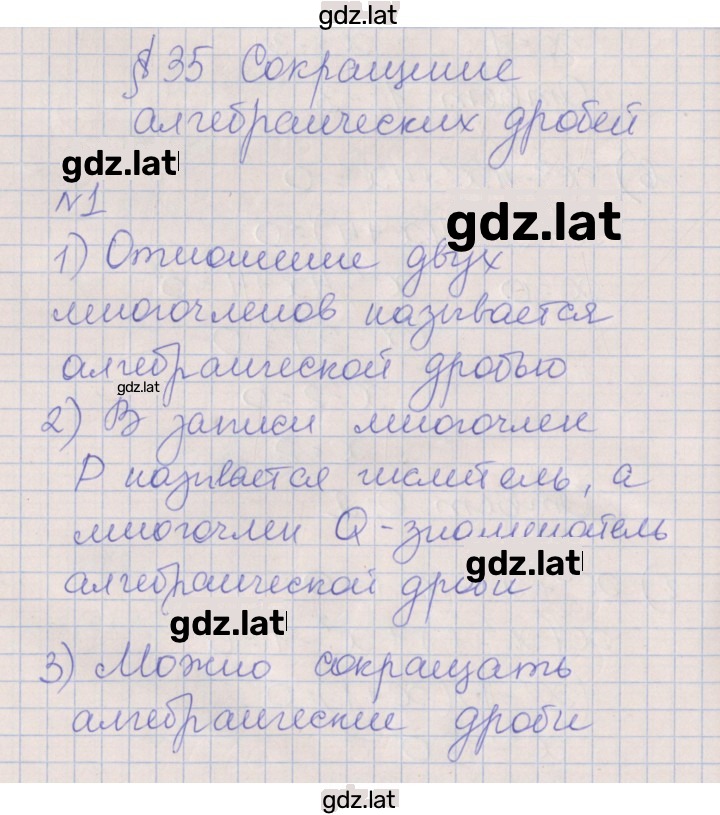 gdz.lat
§ 35 Сокращение
алгебраических дробей
gdz.lat
№1
gdz.lat
1) Отношение двух
многочленов называется
алгебраической дробью
gdz.lat
2) В записи многочлен
P называется числитель, а
многочлен Q - знаменатель
gdz.lat
алгебраической дроби
gdz.lat
3) Можно сокращать
алгебраические дроби
gdz.lat